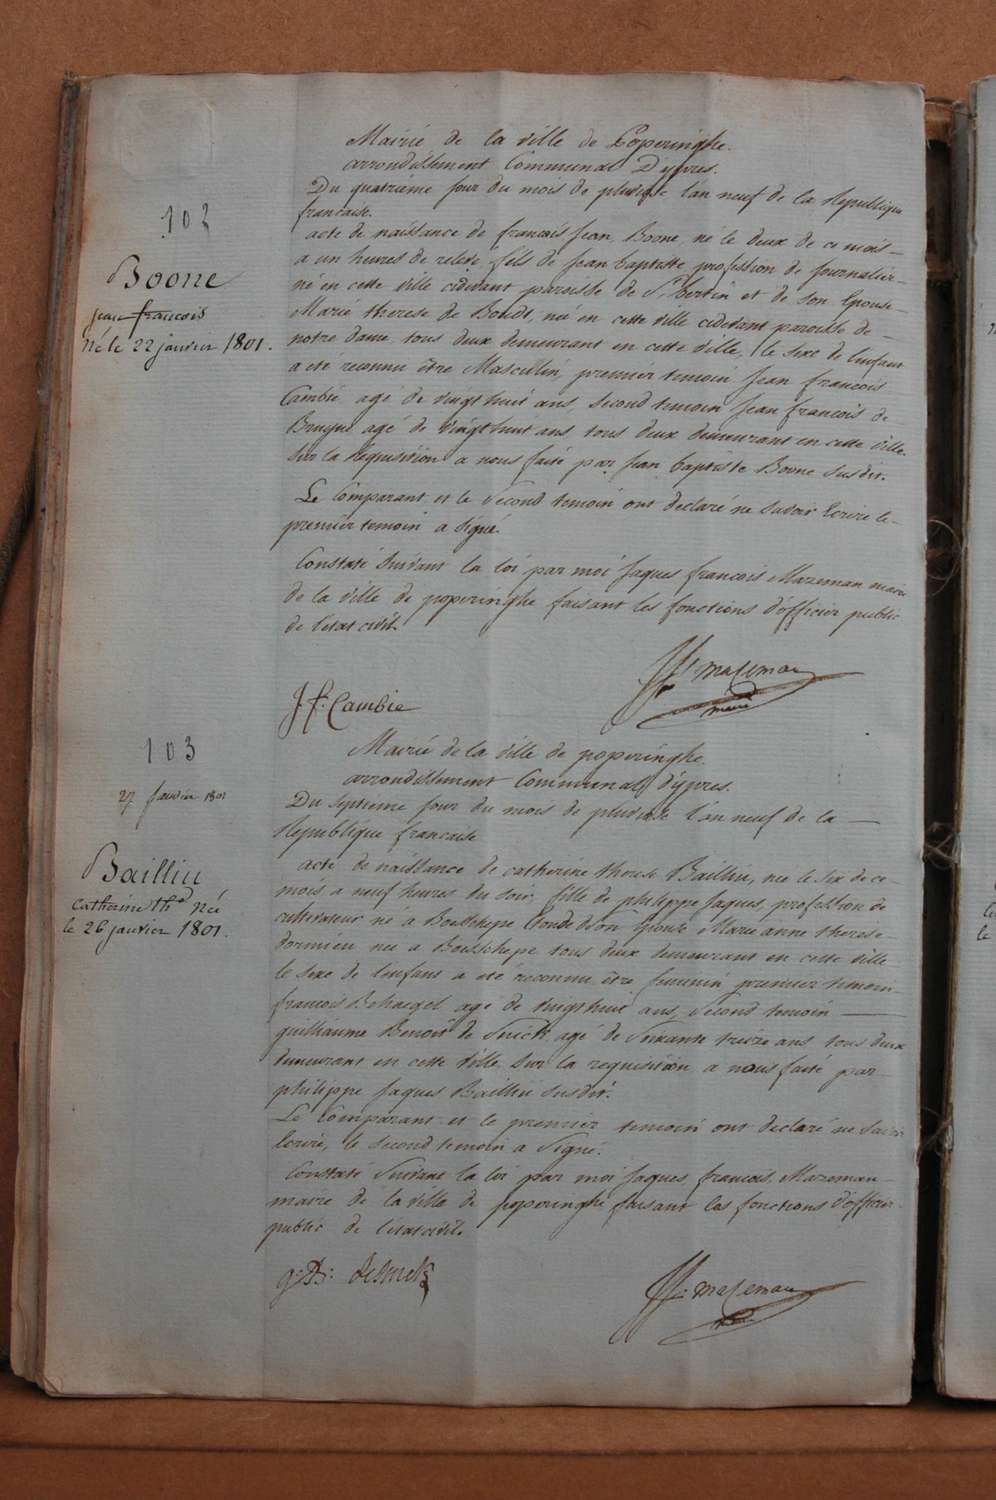 102
Boone
jean francois
né le 22 janvier 1801.
Mairie de la ville de Poperinghe.
arrondissement Communal D'ypres.
Du quatrieme jour du mois de pluviose lan neuf de la Republique
francaise.
acte de naissance de francois Jean Boone, né le deux de ce mois
a un heures de relevé, fils de Jean baptiste profession de Journalier
né en cette ville cidevant paroisse de St bertin et de son Epouse
Marie therese de née en cette ville cidevant paroisse de
notre dame, tous deux demeurant en cette ville, le sexe de l'enfant
a été reconnu être Masculin, premier temoin Jean francois
Cambie agé de vingt huit ans, second temoin Jean francois de
Bruyne agé de vingt huit ans tous deux demeurant en cette ville.
sur la requisition a nous faite par Jean baptiste Boone susdit.
Le Comparant et le Second temoin ont declaré ne savoir Ecrire le
premier temoin a signé.
Constaté suivant la loi par moi Jaques francois Mazeman maire
de la ville de poperinghe faisant les fonctions d'officier public
de l'etat civil.
J. f. Cambie
JJf Mazeman
maire
103
27 Janvier 1801
Bailliu
catherine the née
le 26 janvier 1801.
Mairie de la ville de poperinghe
arrondissement Communal d'ypres.
Du Septieme Jour du mois de pluviose l'an neuf de la
Republique francaise
acte de naissance de catherine therese Bailliu, née le six de ce
mois a neuf heures du soir, fille de philippe Jaques, profession de
cultivateur né a Boesschepe et de son Epouse Marie anne therese
dormieu née a Boesschepe tous deux demeurant en cette ville
le sexe de l'enfant a eté reconnu être feminin premier temoin
francois Behaegel agé de vingt huit ans, second temoin
guilliaume Benoit de Smidt agé de Soixante treize ans tous deux
demeurant en cette ville, sur la requisition a nous faité par
philippe Jaques Bailliu susdit.
Le Comparant et le premier temoin ont declaré ne savoir
Ecrire, le second temoin a Signé.
Constaté Suivant la loi par moi Jaques francois Mazeman
maire de la ville de poperinghe faisant les fonctions d'officier
public de l'etat civil.
g: B: desmidt
JJf: Mazeman